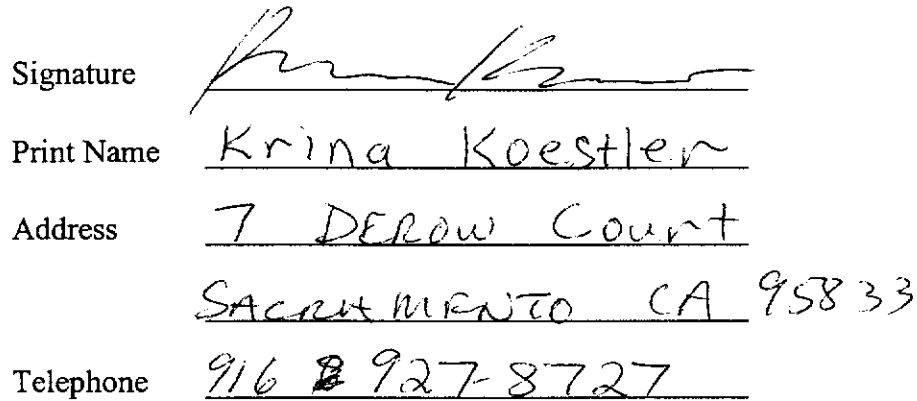 Signature
Print Name Krina Koestler
Address 7 DEROW Court
SACRAMENTO CA 95833
Telephone 916 927-8727